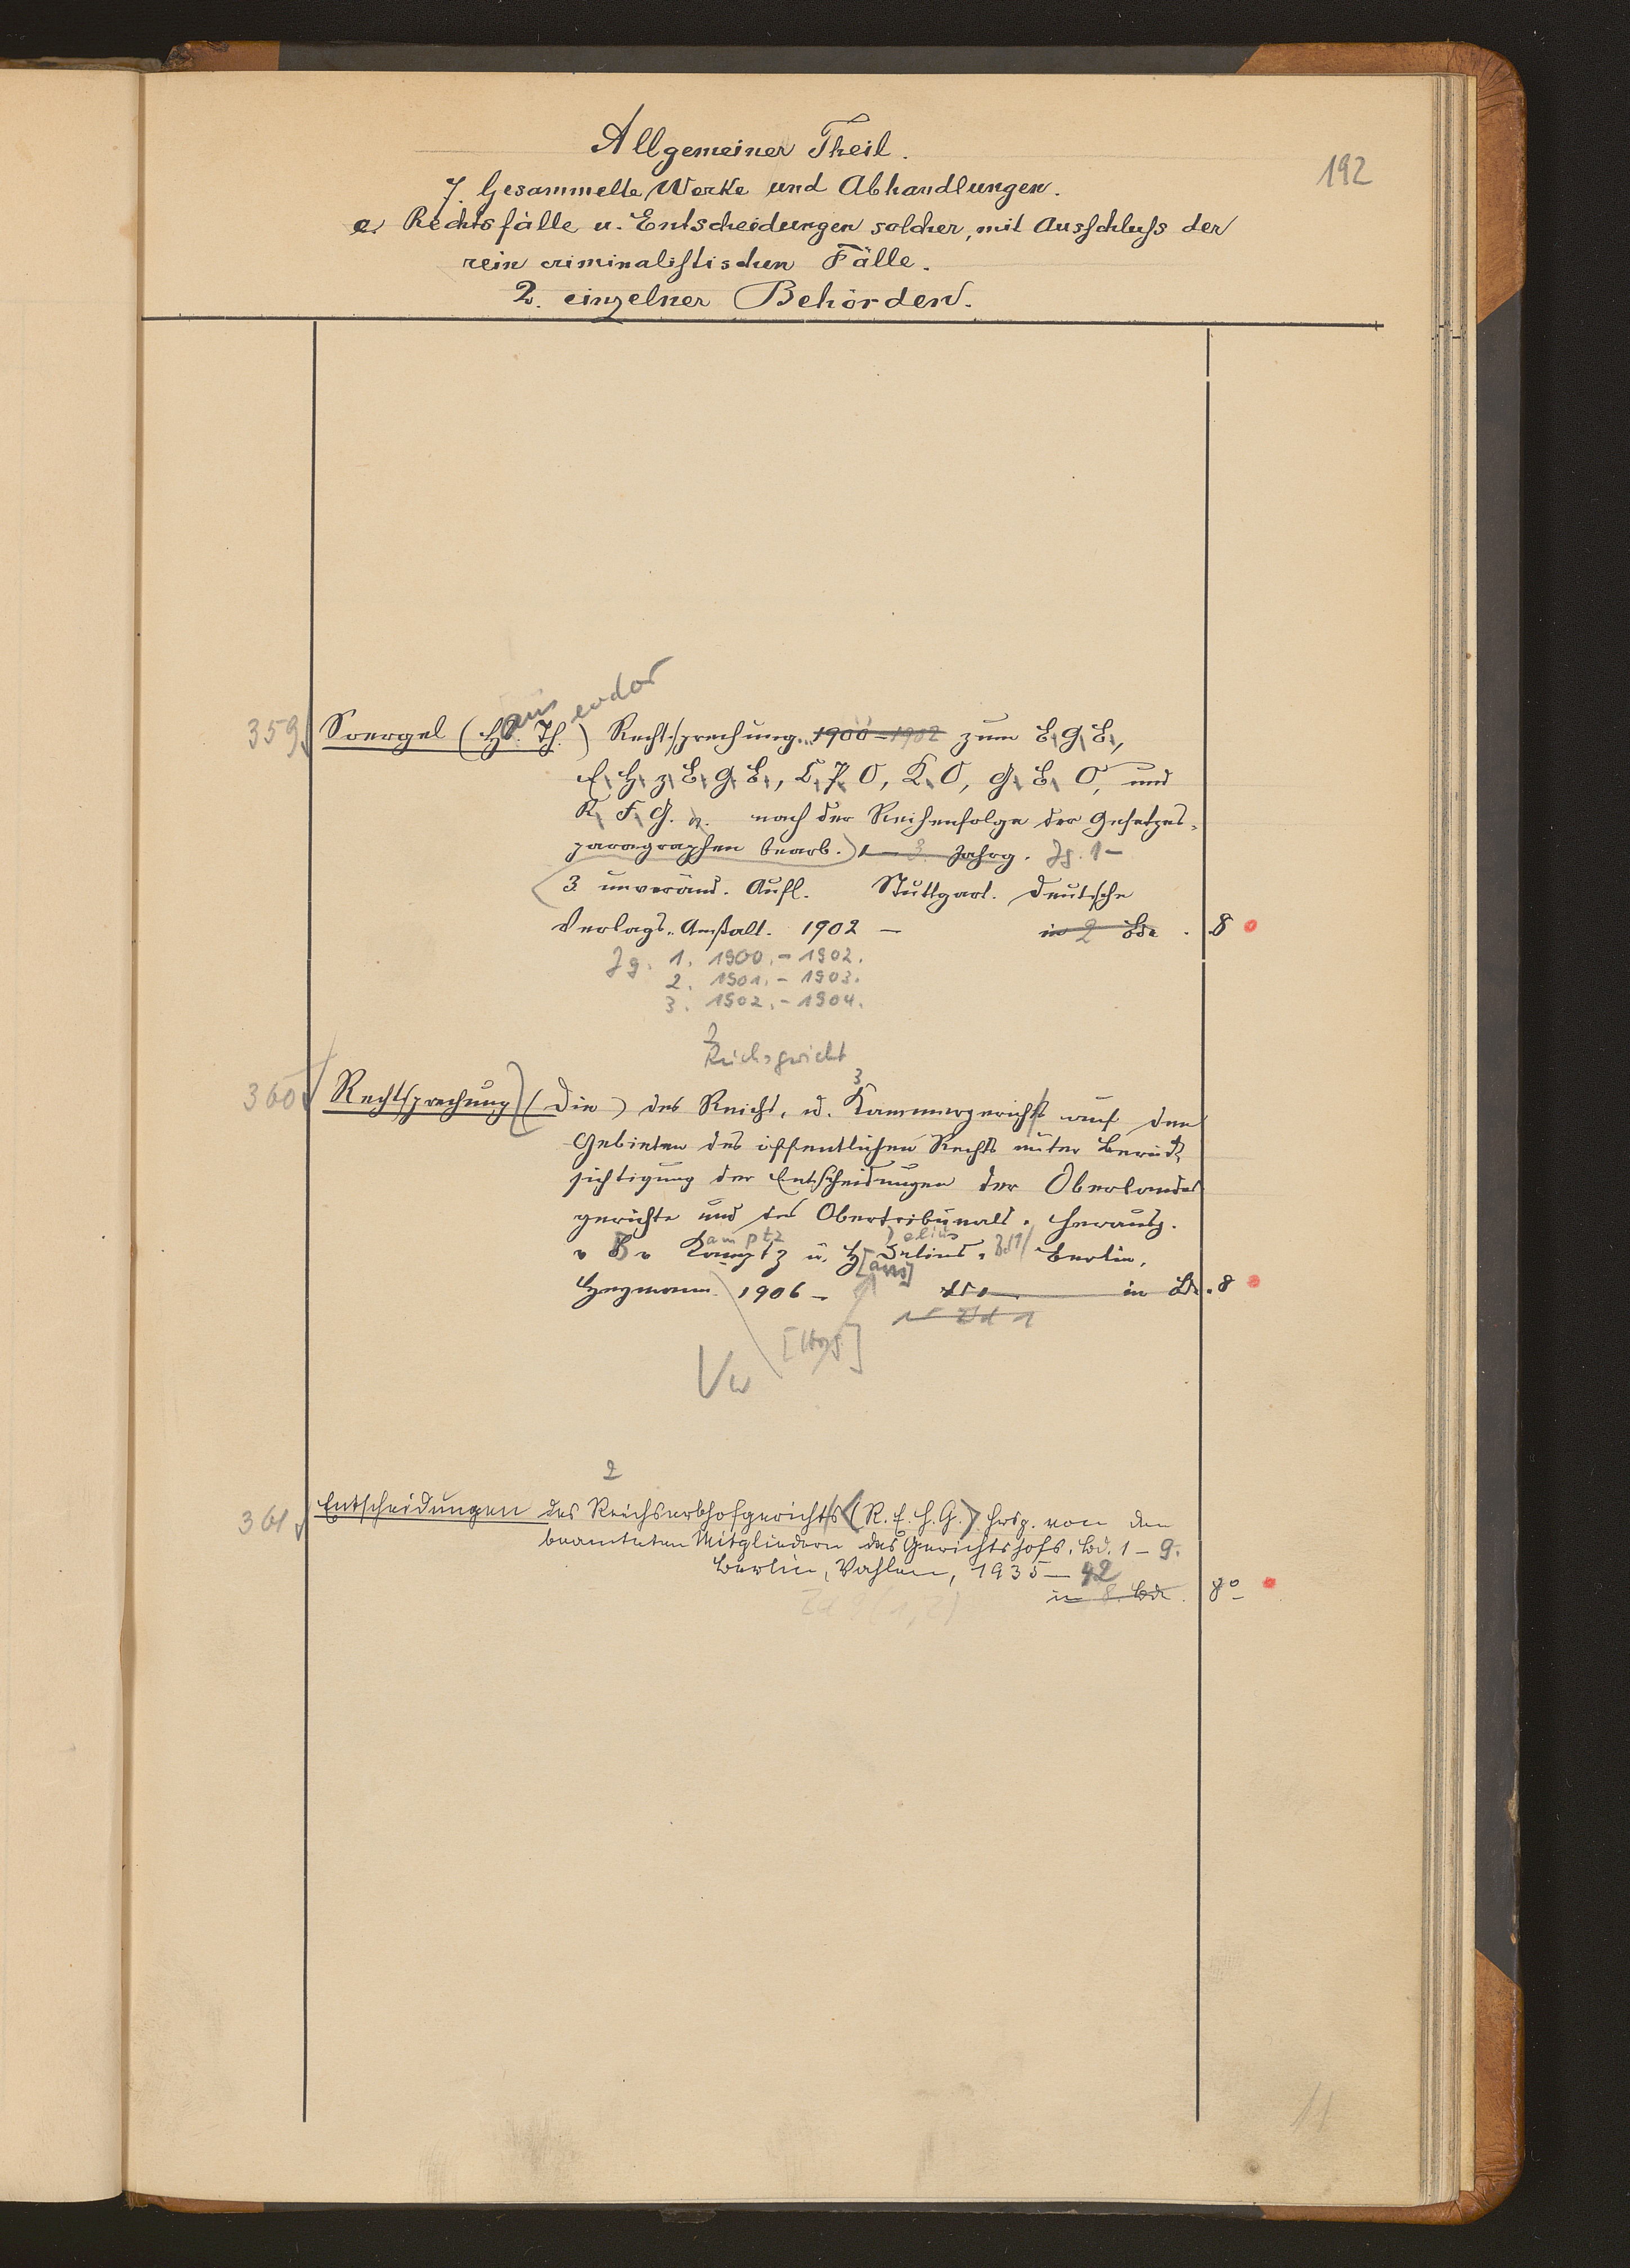 192
Allgemeiner Theil.
7. Gesammelte Werke und Abhandlungen.
e. Rechtsfälle u. Entscheidungen solcher, mit Ausschluss der
rein criminalistischen Fälle.
2. einzelner Behörden.
ans eodor
359 Soergel (Hs. Th.) Rechtsprechung 1900-1902 zum B.G.B.,
E. H. z. B. G. B., C. P. O, K. O, G. B. O, und
R. F. G. nach der Reihenfolge der Gesetzes-
paragraphen bearb.) 1-3. Jahrg. Jg. 1-
3. unveränd. Aufl. Stuttgart. Deutsche
Verlags-Anstalt. 1902 — in 2 Bde. 8
Jg. 1. 1900.-1902.
2. 1901.-1903.
3. 1902.-1904.
2
Reichsgericht
3
360 Rechtsprechung (Die) des Reichs- u. Kammergerichts auf den
Gebieten des öffentlichen Rechts unter Berück-
sichtigung der Entscheidungen der Oberlandes-
gerichte und des Obertribunals. Herausg.
amptz elius
v B v Kamptz u. H. Delius. Bd 1 Berlin,
[ans]
Heymann. 1906 - in Bde. 8
Bd 1
[Hrsg.]
Vw
2
361 Entscheidungen des Reichserbhofgerichts (R.E.H.G.) hrsg. von den
beamteten Mitgliedern des Gerichtshofs. Bd. 1-9.
Berlin, Vahlen, 1935-42
in 8. Bde. 8°
Bd 9(1,2)
11